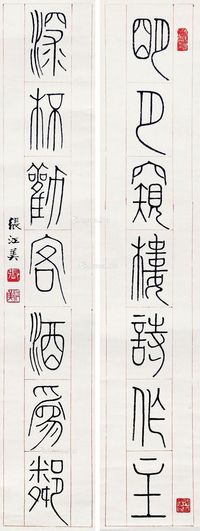 明月窺樓詩作主
深杯勸客酒爲鄰
張江美